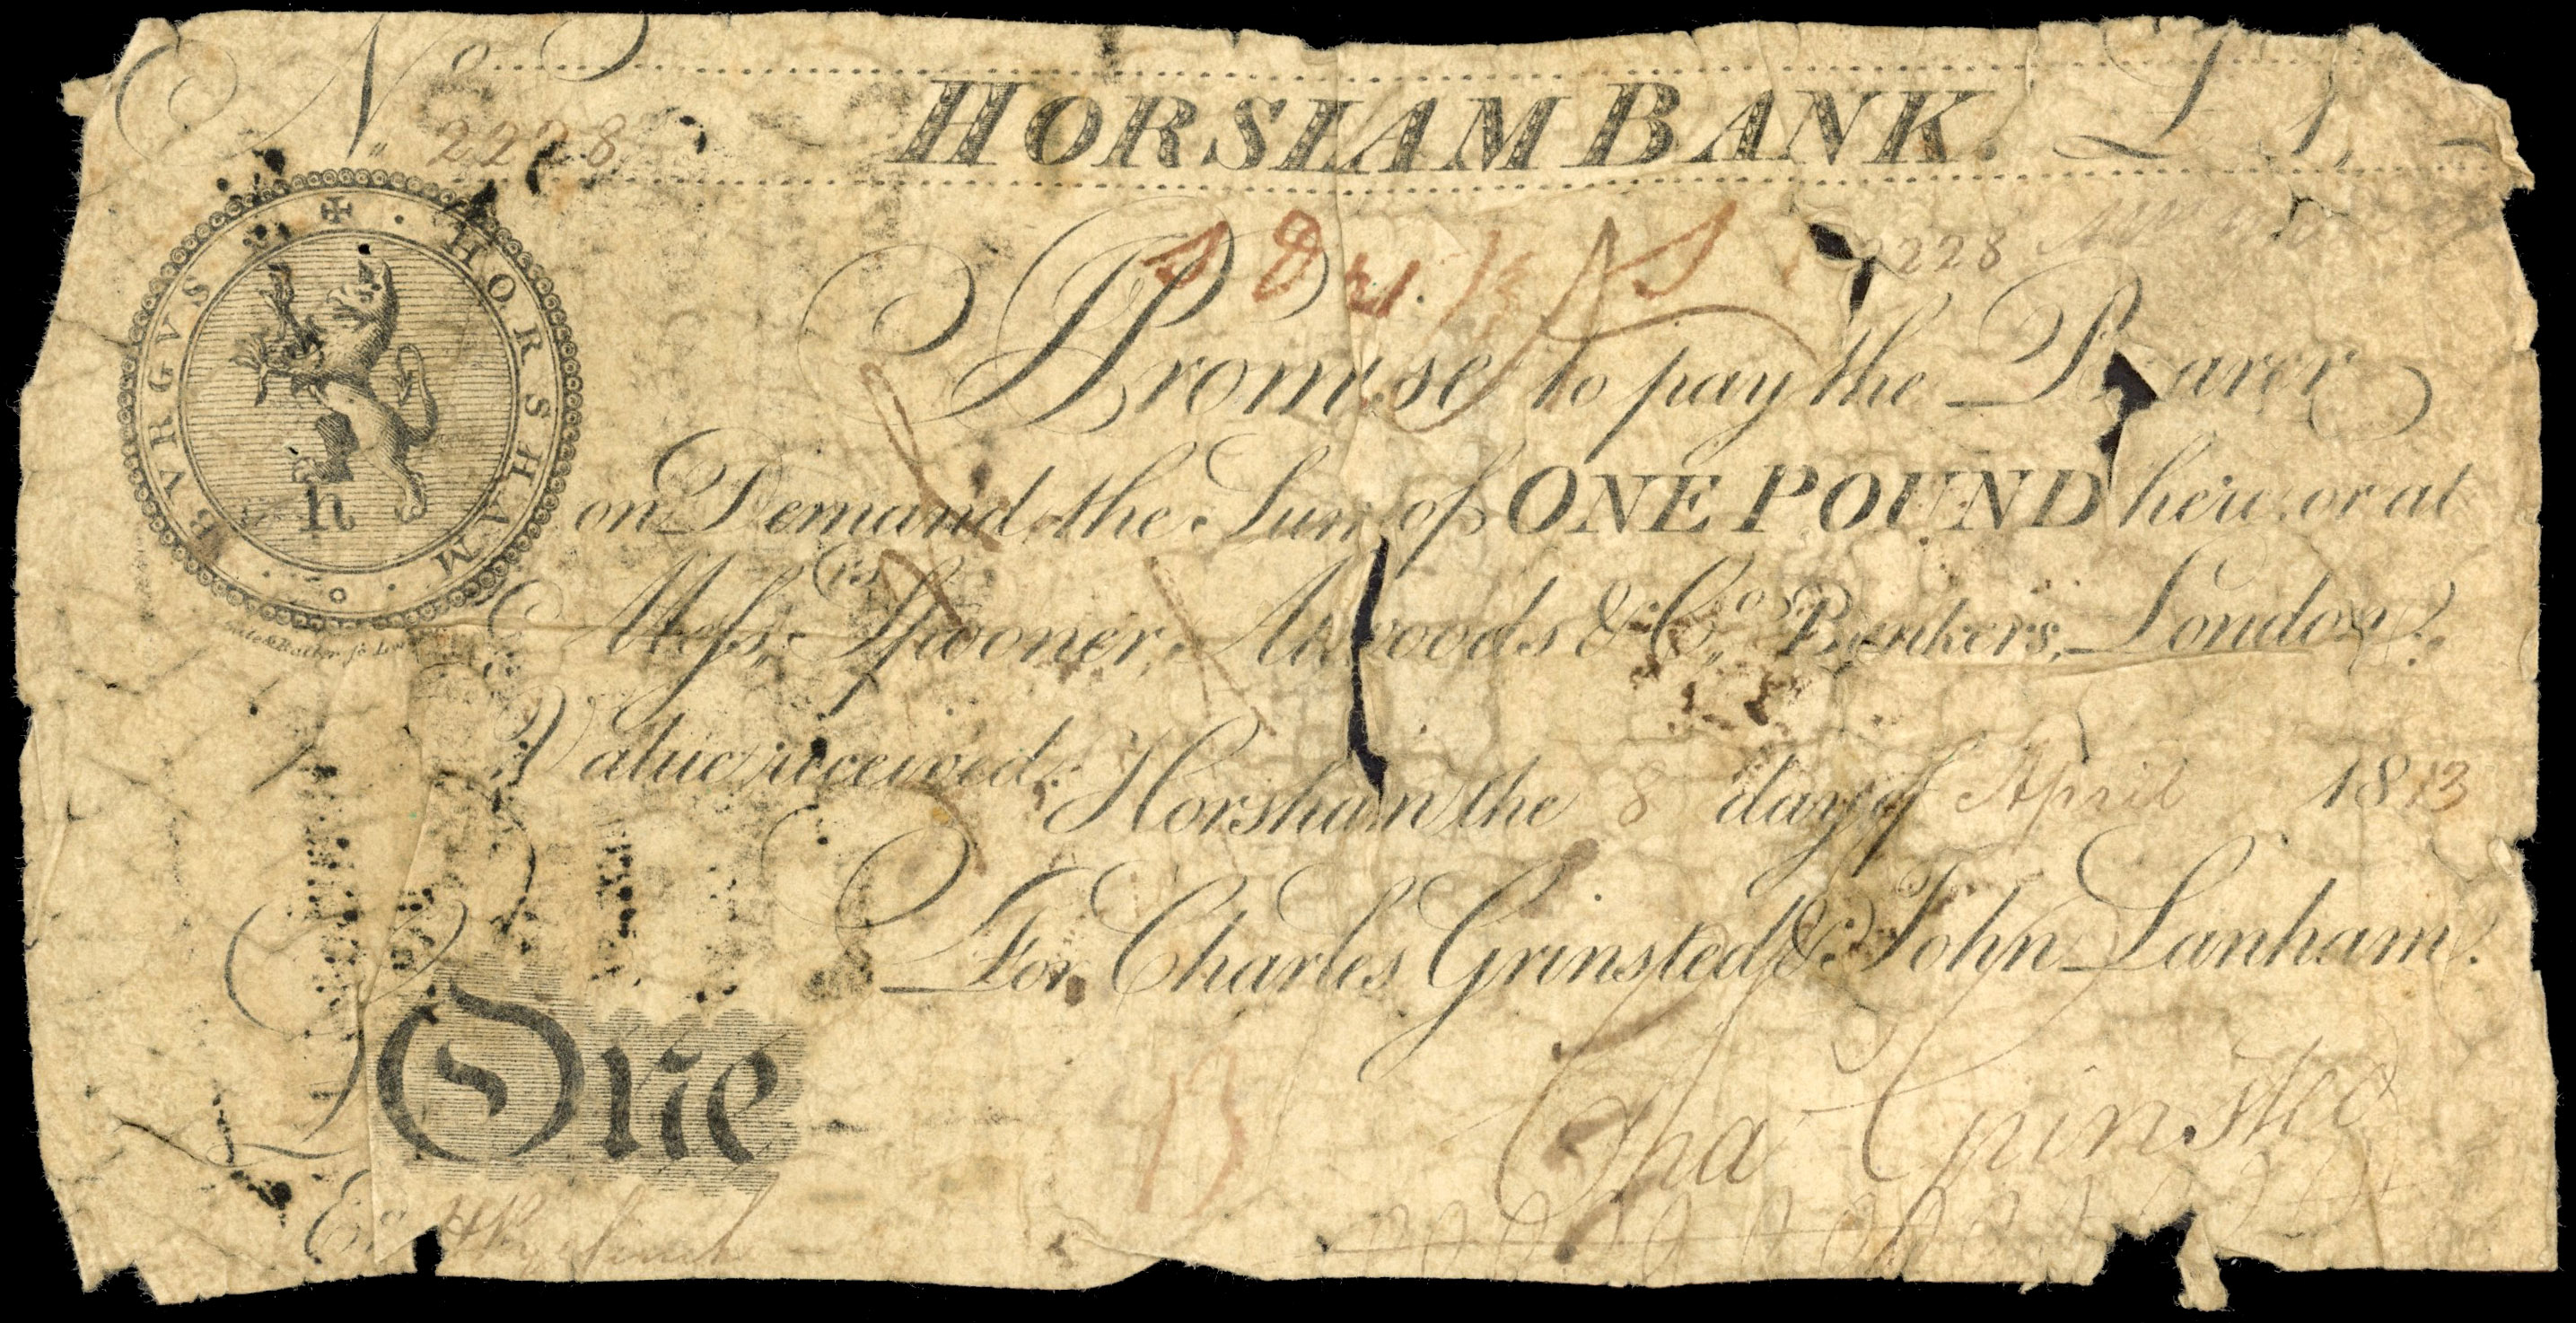 No 2228 HORSHAM BANK. £1,
BVRGVS HORSHAM
h
2228
I Promise to pay the Bearer
on Demand the Sum of ONE POUND here or at
Messrs Spooner, Attwoods & Co. Bankers, London.
Value received. Horsham the 8 day of April 1813
For Charles Grinsted & John Lanham.
£ One
Cha Grinsted
Ent